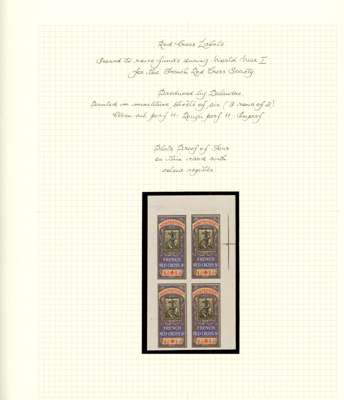 Red Cross Labels
Issued to raise funds during World War I
for the French Red Cross Society
Produced by Delandre
Printed in miniature sheets of six (3 rows of 2)
perf 11 Rough perf 11 Imperf
Plate Proof of four
on fine card with
colour register
FRENCH FRENCH
RED CROSS RED CROSS
FRENCH FRENCH
RED CROSS RED CROSS